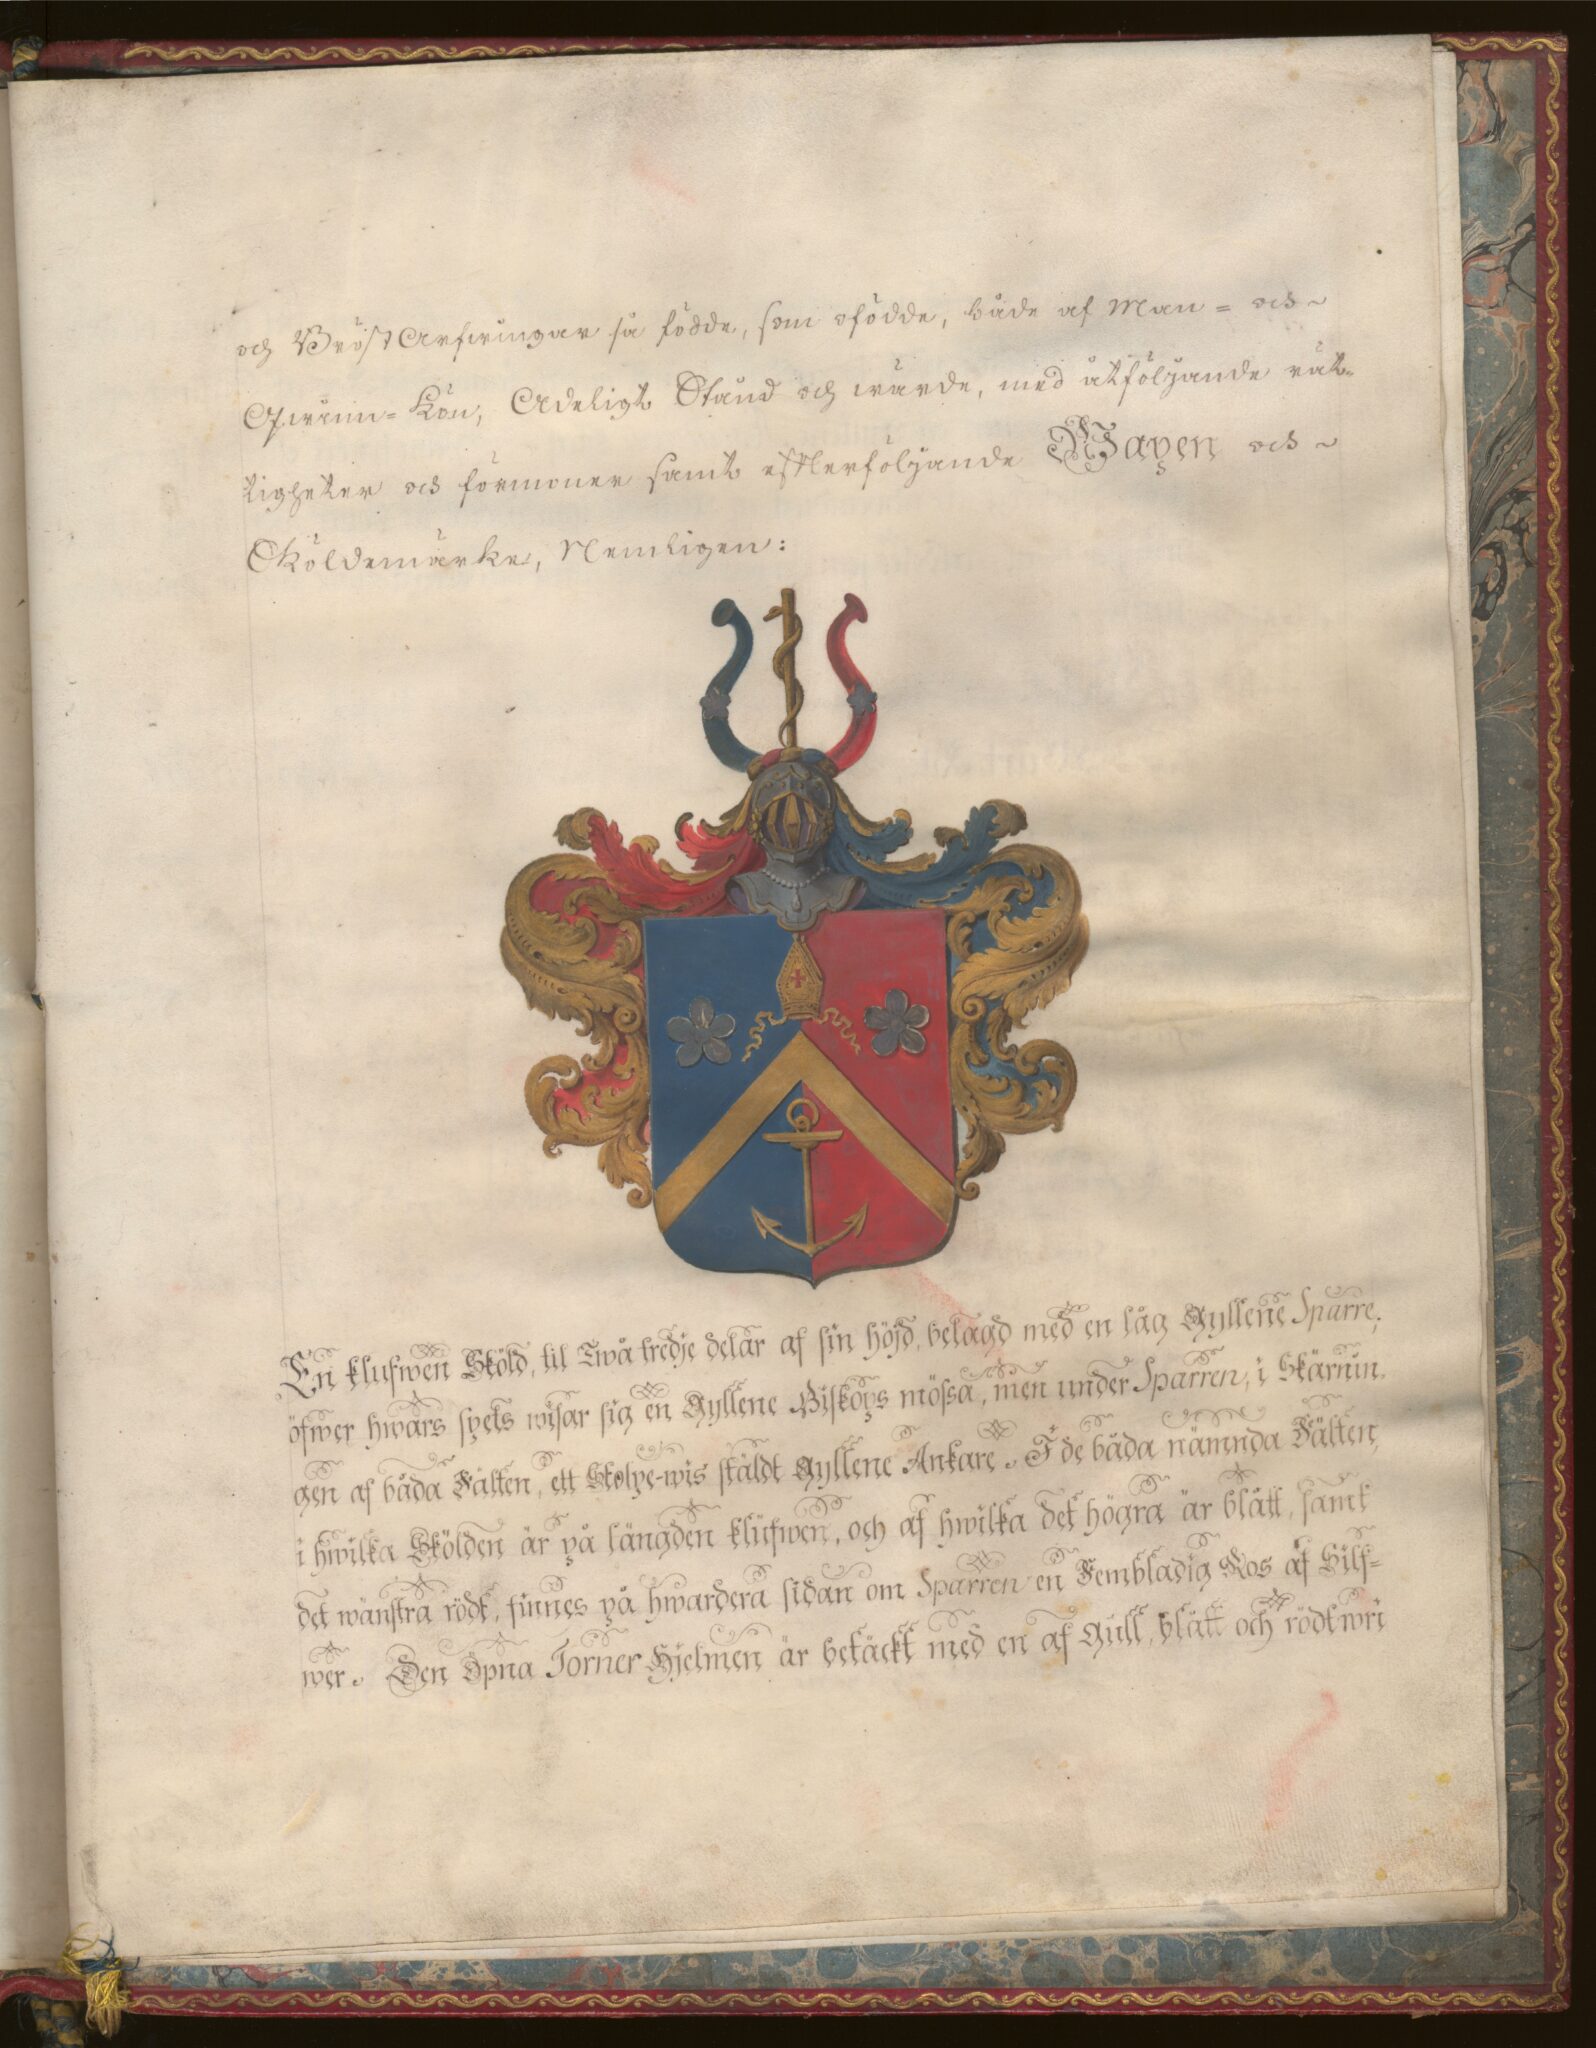 och BröstArfwingar så födde, som ofödde, både af Man= och
Qwinn=Kön, Adeligt Stånd och wärde, med åtföljande rät-
tigheter och förmoner samt efterföljande Wapen och
Sköldemärke, Nemligen:
En klufwen Sköld, til Twå tredje delar af sin höjd, belagd med en låg Gyllene Sparre,
öfwer hwars spets wisar sig en Gyllene Biskops mössa, men under Sparren, i Skärnin-
gen af båda Fälten, ett Stolpe-wis stäldt Gyllene Ankare. I de båda nämnda Fälten,
i hwilka Skölden är på längden klufwen, och af hwilka det högra är blått, samt
det wänstra rödt, finnes på hwardera sidan om Sparren en Fembladig Ros af Silf=
wer. Den Öpna Torner Hjelmen är betäckt med en af Gull, blått och rödt wri